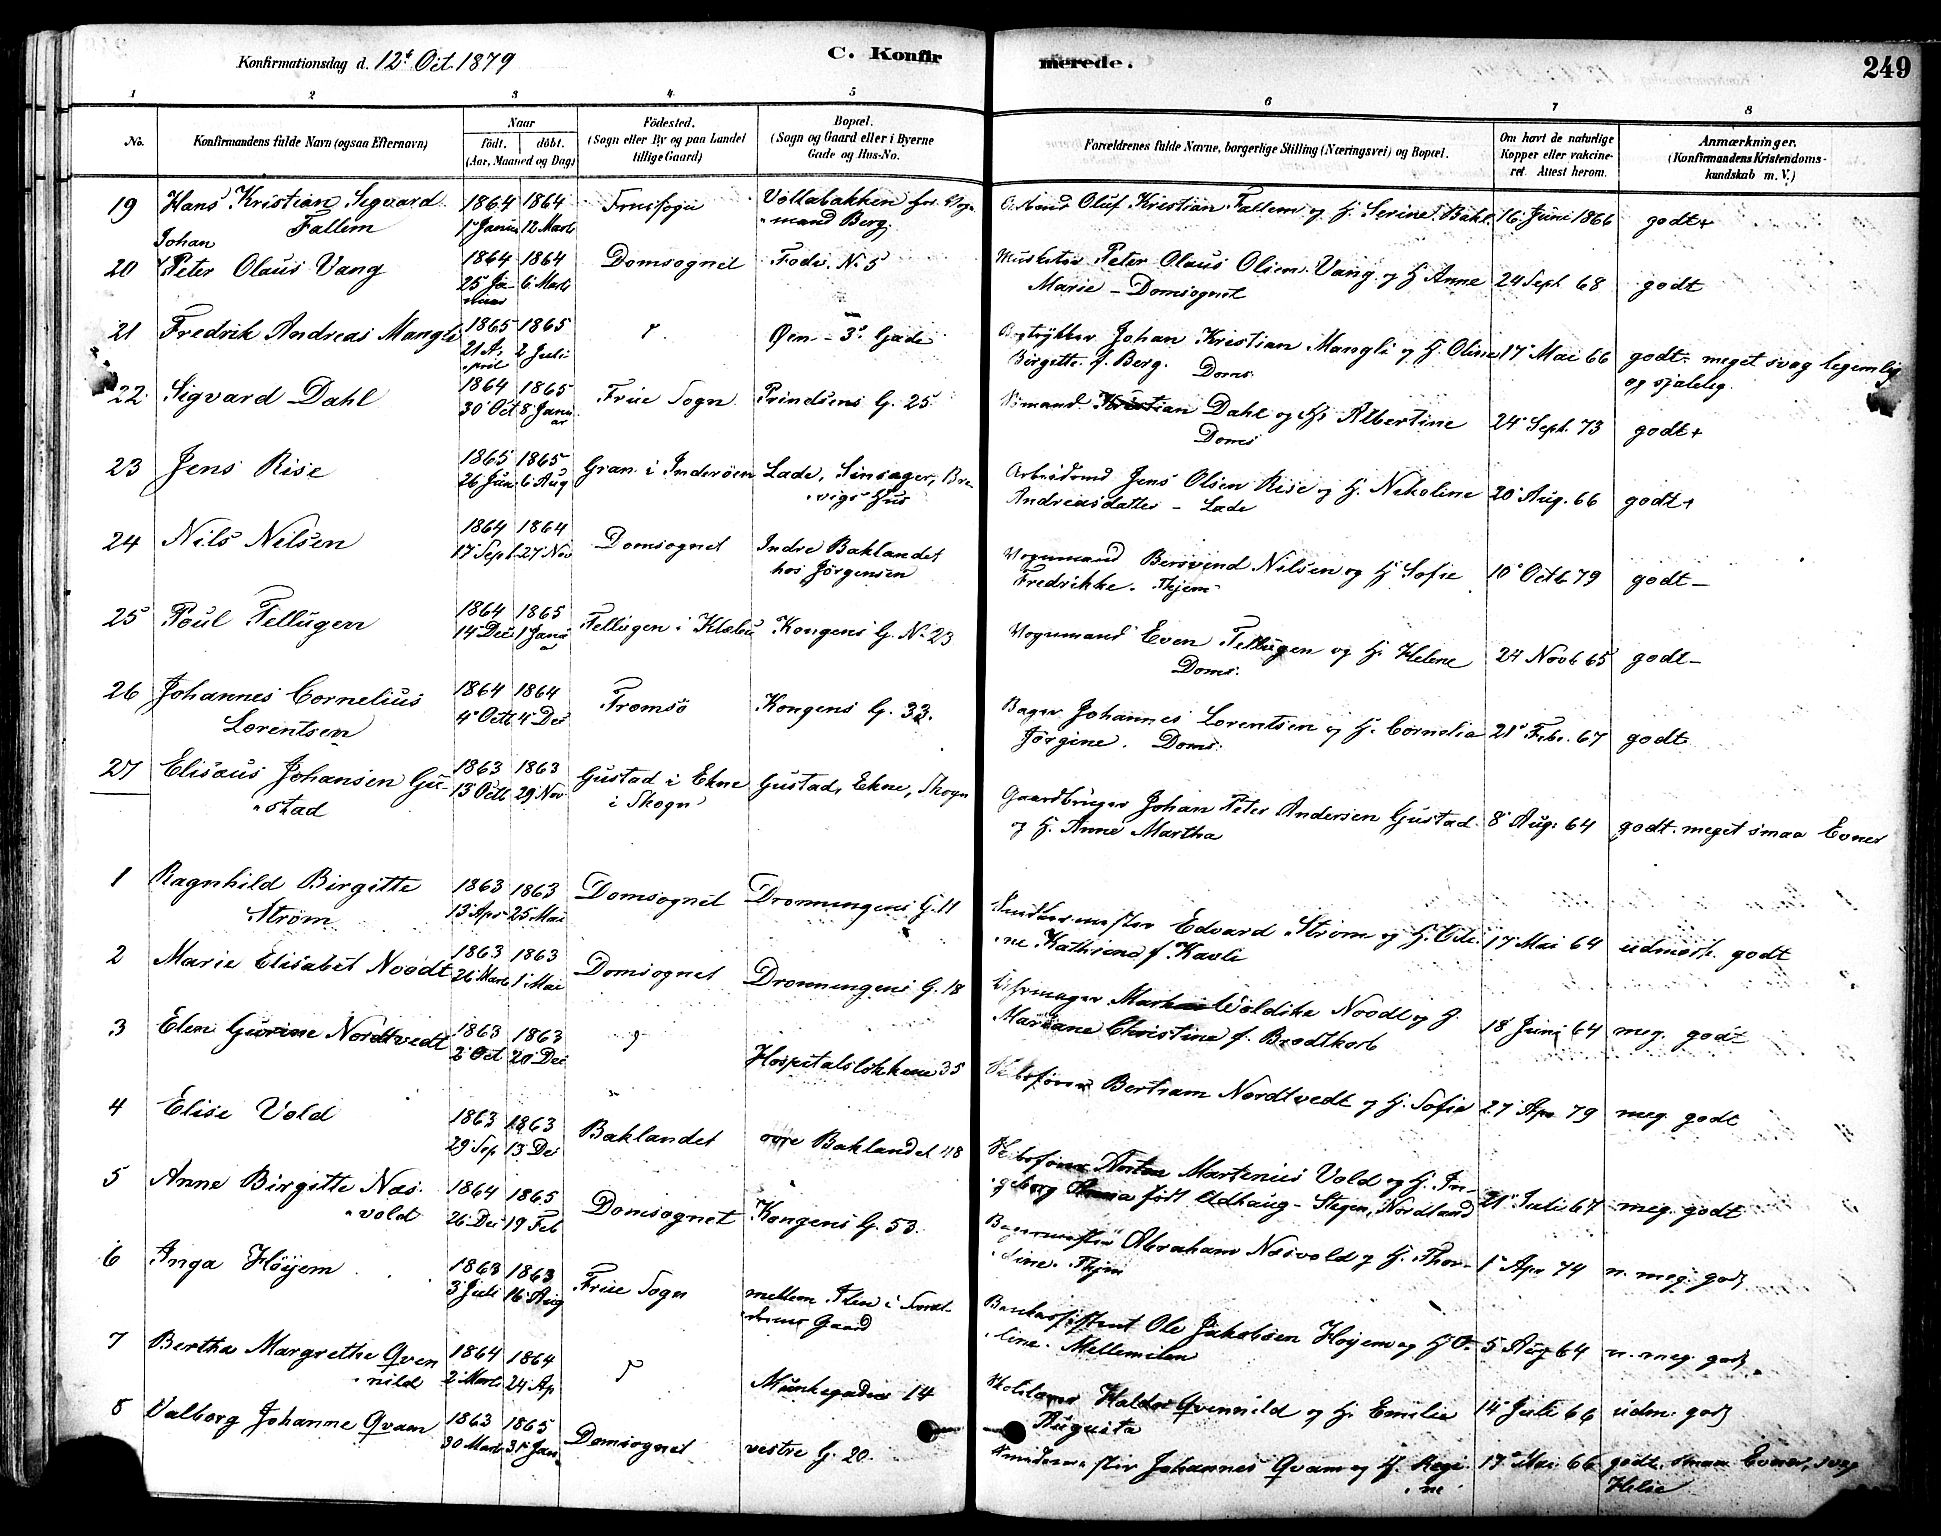 Konfirmationsdag d. 12t Oct. 1879
C. Konfirmerede.
249
1 2 3 4 5 6 7 8
No. Konfirmandens fulde Navn (ogsaa Efternavn) Naar födt. döbt. (Aar, Maaned og Dag) Födested. (Sogn eller By og paa Landet tillige Gaard) Bopæl. (Sogn og Gaard eller i Byerne Gade og Hus-No. Forældrenes fulde Navne, borgerlige Stilling (Næringsvei) og Bopæl. Om havt de naturlige Kopper eller vakcineret. Attest herom. Anmærkninger. (Konfirmandens Kristendomskundskab m. V.)
19 Hans Kristian Sigvard Fallem 1864 1864 12 Marts Vollabakken Berg Oluf Kristian Fallem og H. Serine Dahl. 16 Juni 1866 godt+
20 Johan Peter Olaus Vang 1864 25 Januar 1864 6 Marts Domsognet No 5 Peter Olaus Olsen Vang og H. Anne Marie - Domsognet 24 Sept 68 godt
21 Fredrik Andreas Mangli 1865 21 April 1865 2 Juli Øen - 3d Gade Johan Kristian Mangli og H. Oline Birgitte f. Berg. Doms. 17 Mai 66 godt. meget svag legemlig og sjælelig.
22 Sigvard Dahl 1864 30 Oct 1865 8 Januar Frue Sogn Prindsens G. 25 Kristian Dahl og H. Albertine Doms. 24 Sept. 73 godt+
23 Jens Rise 1865 26 Jun 1865 6 Aug Gran i Inderøen Lade, Sinsager, Brevigs Hus Jens Olsen Rise og H. Nekoline Andreasdatter - Lade 20 Aug. 66 godt+
24 Nils Nelsen 1864 17 Sept. 1864 27 Nov Domsognet Indre Baklandet hos Jörgensen Vognmand Bersvend Nilsen og H. Sofie Fredrikke. Thjem 10 Octb 79 godt-
25 Poul Tellugen 1864 14 Dec 1865 1 Janu Tellugen i Klæbu Kongens G. No 23 Vognmand Even Tellugen og H. Helene Doms. 24 Novb 65 godt-
26 Johannes Cornelius Lorentsen 1864 4 Octb 1864 4 Dec Tromsö Kongens G. 33. Bager Johannes Lorentsen og H. Cornelia Jörgine. Doms. 21 Febr. 67 godt
27 Elisæus Johansen Gustad 1863 13 Octb 1863 29 Nov Gustad i Ekne i Skogn Gustad, Ekne, Skogn Gaardbruger Johan Peter Andersen Gustad og H. Anne Martha 8 Aug. 64 godt. meget smaa Evner
1 Ragnhild Birgitte Ström 1863 13 Apr 1863 25 Mai Domsognet Dronningens G. 11 Edvard Ström og H. Kathrine f. Kavli 17 Mai 64 udmærk. godt
2 Marie Elisabet Noodt 1863 26 Marts 1863 1 Mai Domsognet Dronningens G. 18 Woldike Noodt og H. Mariane Christine f. Brodtkorb 18 Juni 64 meg. godt
3 Elen Gurine Nordtvedt 1863 2 Oct 1863 20 Dec Hospitalslökkene 35 Bertram Nordtvedt og H. Sofie 27 Apr 79 meg. godt
4 Elise Vold 1863 29 Sep 1863 13 Dec Baklandet övre Baklandet 48 Martenius Vold og H. Ingeborg född Udhaug - Stegen, Nordland 21 Juli 67 meg. godt
5 Anne Birgitte Næsvold 1864 26 Dec 1865 19 Feb Domsognet Kongens G. 53. Bagermester Abraham Næsvold og H. Thorsine. Thjem 1 Apr 74 n. meg. godt
6 Inga Höyem 1863 3 Juli 1863 16 Aug Frue Sogn mellem Ilen i Gaard Ole Jakobsen Höyem og H. Mellemilen 5 Aug 64 n. meg. godt
7 Bertha Margrethe Qvennild 1864 2 Marts 1864 24 Ap Munkegaden 14 Haldor Qvennild og H. Emilie Augusta 14 Juli 66 udm. godt
8 Valborg Johanne Qvam 1863 30 Marts 1865 31 Jan Domsognet vestre G. 20. Johannes Qvam og H. Regine 17 Mai 66 godt. smaa Evner, svag Helse